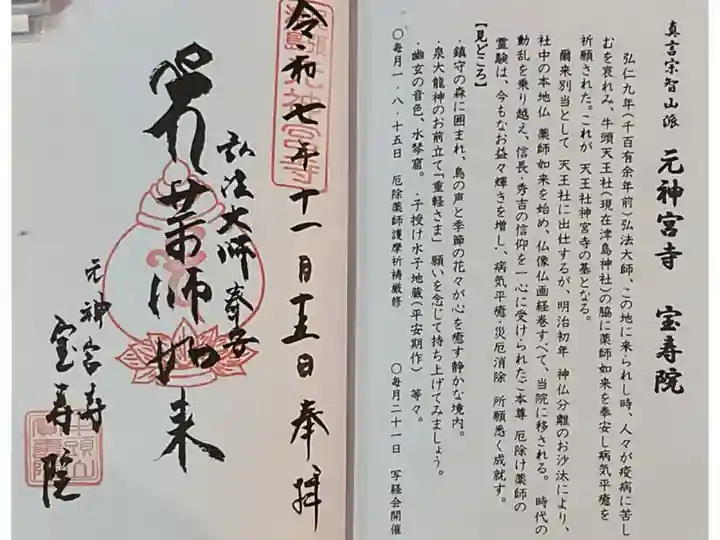 真言宗智山派 元神宮寺 宝寿院
弘仁九年(千百有余年前)弘法大師、この地に来られし時、人々が疫病に苦し
むを哀れみ、牛頭天王社(現在津島神社)の脇に薬師如来を奉安し病気平癒を
祈願された。これが 天王社神宮寺の基となる。
爾来別当として 天王社に出仕するが、明治初年 神仏分離のお沙汰により、
社中の本地仏 薬師如来を始め、仏像仏画経巻すべて、当院に移される。時代の
動乱を乗り越え、信長・秀吉の信仰を一心に受けられたご本尊 厄除け薬師の
霊験は、今もなお益々輝きを増し、病気平癒・災厄消除 所願悉く成就す。
【見どころ】
・鎮守の森に囲まれ、鳥の声と季節の花々が心を癒す静かな境内。
・泉大龍神のお前立て「重軽さま」 願いを念じて持ち上げてみましょう。
・幽玄の音色、水琴窟。 ・子授け水子地蔵(平安期作) 等々。
〇毎月一・八・十五日 厄除薬師護摩祈祷厳修 〇毎月二十一日 写経会開催
令和七年十一月十五日 奉拝
弘法大師奉安
薬師如来
元神宮寺
宝寿院